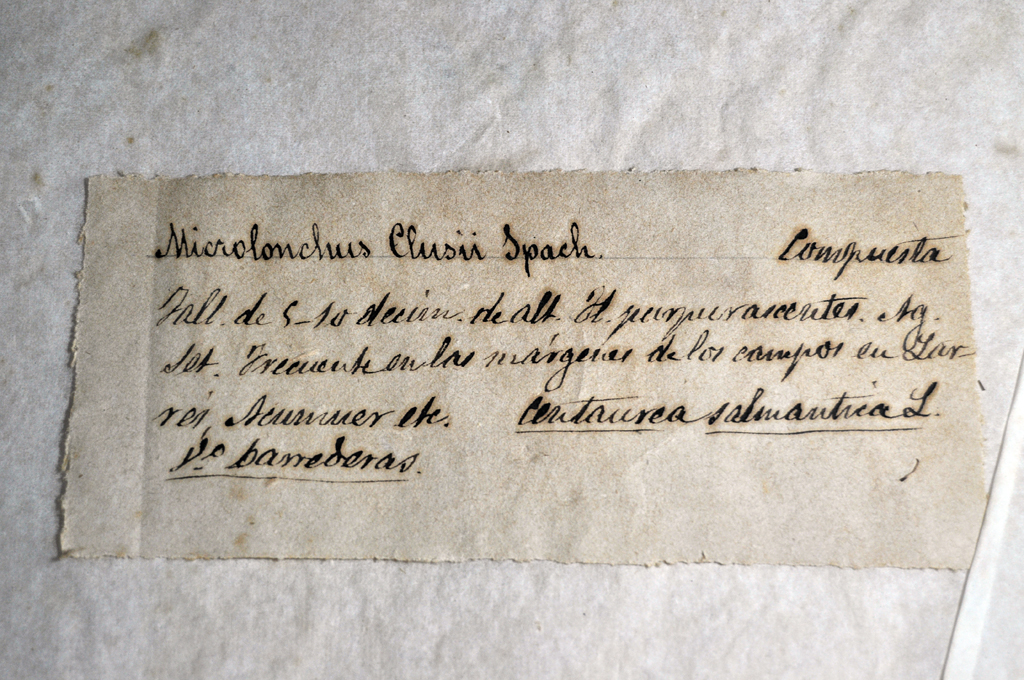 Microlonchus Clusii Spach. Compuesta
Tall. de 5-10 decim. de alt. Fl. purpurascentes. Ag.
Set. Frecuente en las márgenes de los campos en Lar-
rés, Acumuer etc. Centaurea salmantica L.
Vº barrederas.